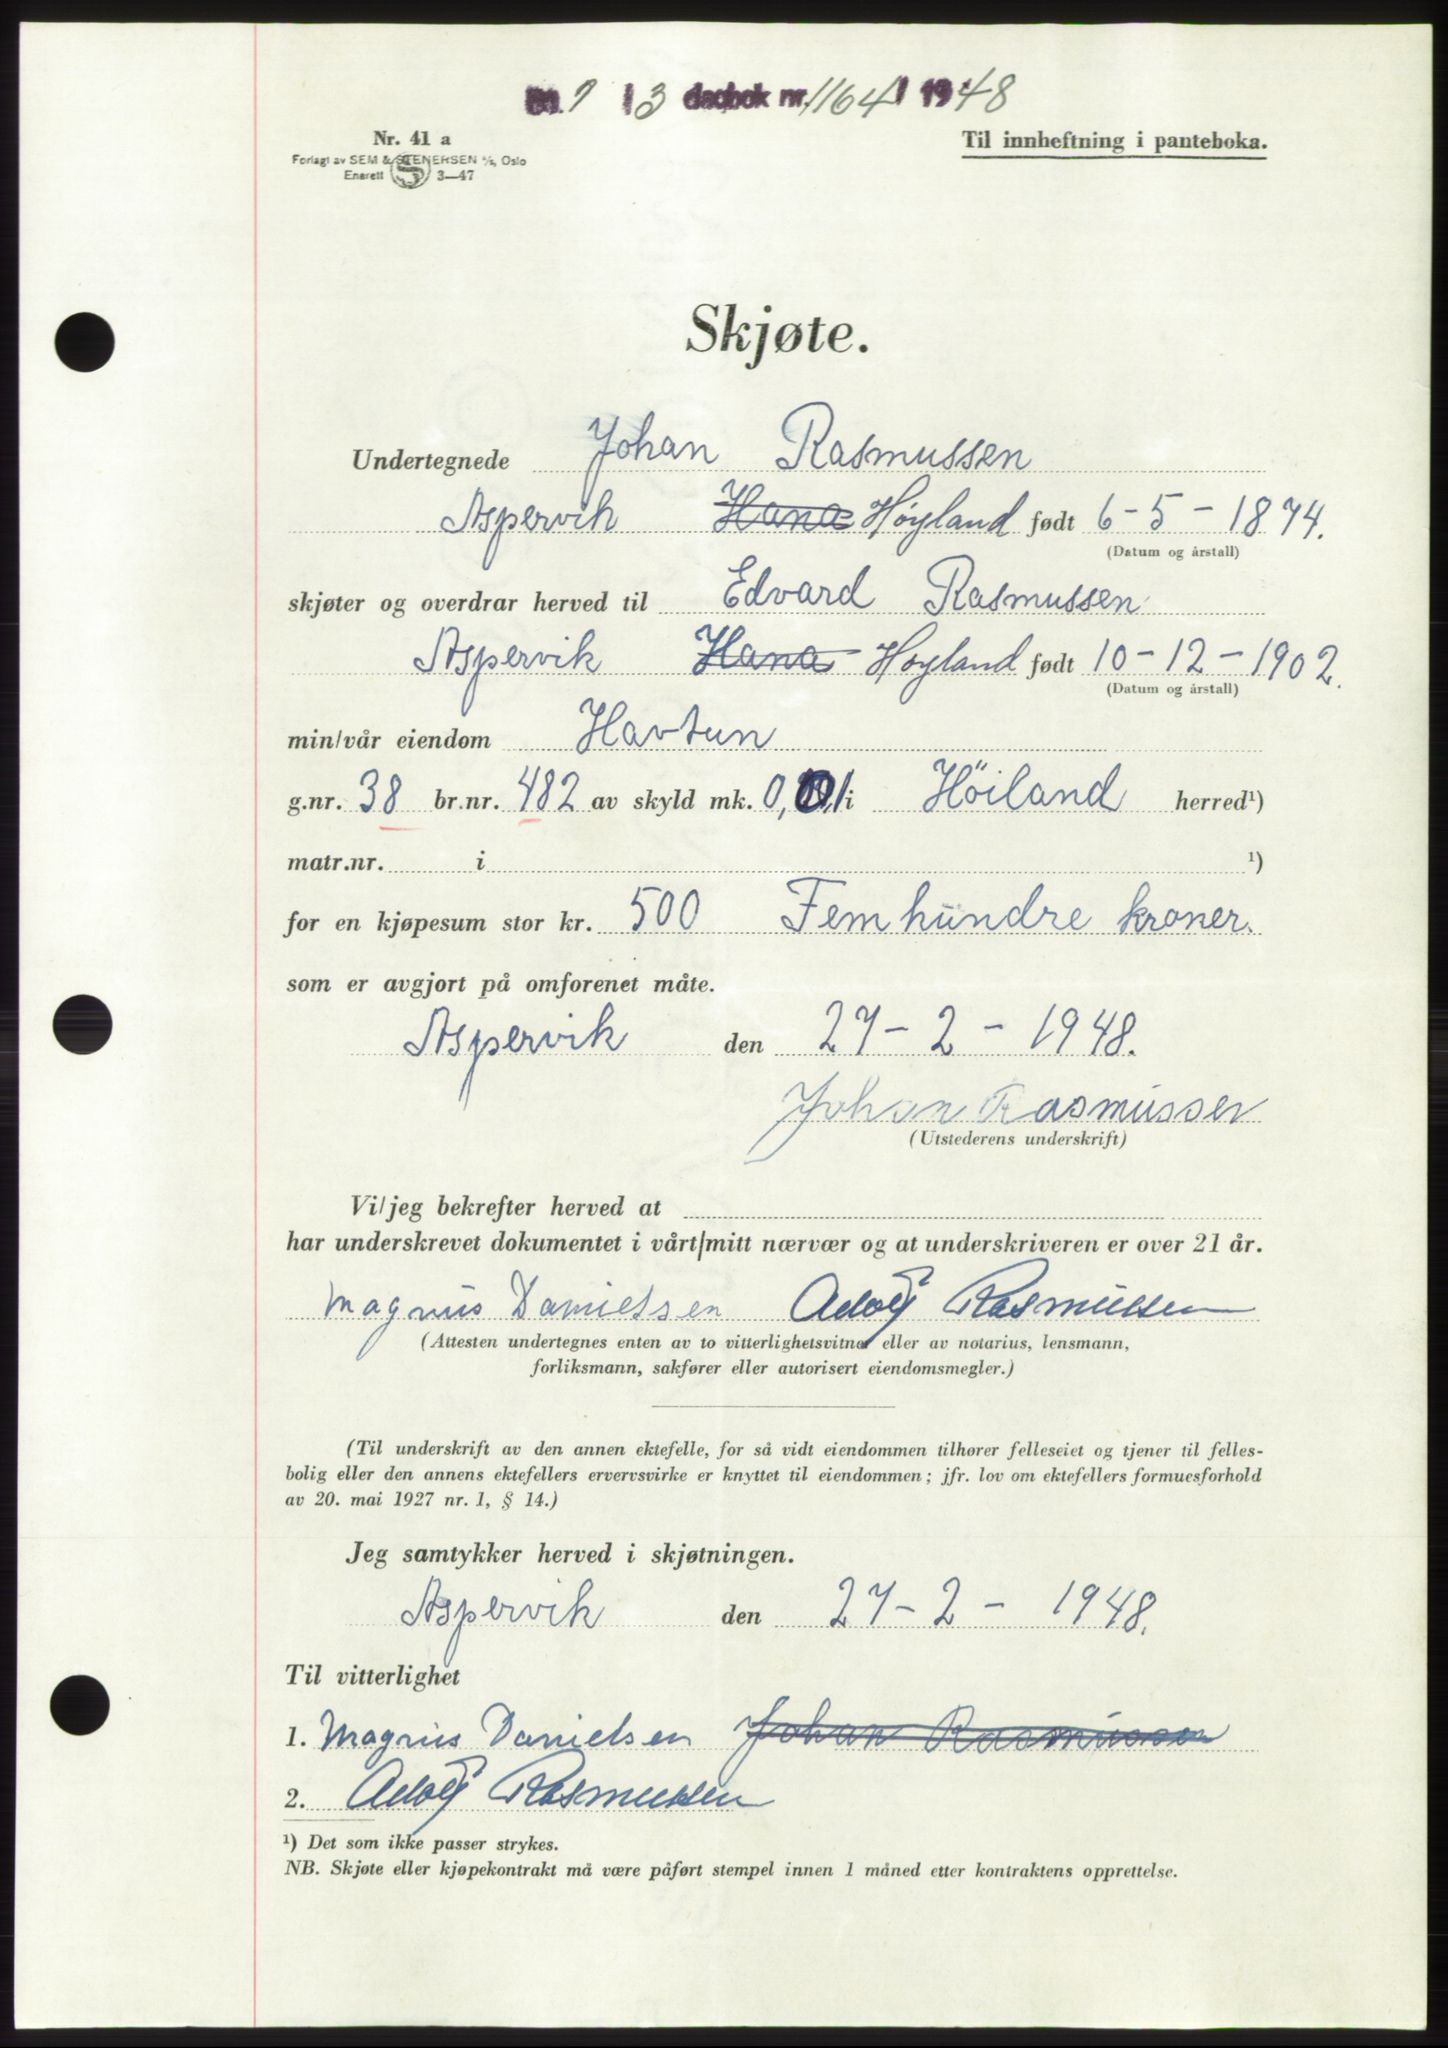 1 / 3 dagbok nr. 1164 / 1948
Nr. 41 a
Til innheftning i panteboka.
Forlagt av SEM & STENERSEN A/S, Oslo
Enerett 3—47
Skjøte.
Undertegnede Johan Rasmussen
Aspervik Hana Høyland født 6-5-1874.
(Datum og årstall)
skjøter og overdrar herved til Edvard Rasmussen
Aspervik Hana Høyland født 10-12-1902.
(Datum og årstall)
min/vår eiendom Havtun
g.nr. 38 br.nr. 482 av skyld mk. 0,01 i Höiland herred¹)
matr.nr. i ¹)
for en kjøpesum stor kr. 500 Fem hundre kroner.
som er avgjort på omforenet måte.
Aspervik den 27-2-1948.
Johan Rasmussen
(Utstederens underskrift)
Vi/jeg bekrefter herved at
har underskrevet dokumentet i vårt/mitt nærvær og at underskriveren er over 21 år.
Magnus Danielsen Adolf Rasmussen
(Attesten undertegnes enten av to vitterlighetsvitner eller av notarius, lensmann,
forliksmann, sakfører eller autorisert eiendomsmegler.)
(Til underskrift av den annen ektefelle, for så vidt eiendommen tilhører felleseiet og tjener til felles-
bolig eller den annens ektefellers ervervsvirke er knyttet til eiendommen; jfr. lov om ektefellers formuesforhold
av 20. mai 1927 nr. 1, § 14.)
Jeg samtykker herved i skjøtningen.
Aspervik den 27-2-1948.
Til vitterlighet
1. Magnus Danielsen Johan Rasmussen
2. Adolf Rasmussen
¹) Det som ikke passer strykes.
NB. Skjøte eller kjøpekontrakt må være påført stempel innen 1 måned etter kontraktens opprettelse.